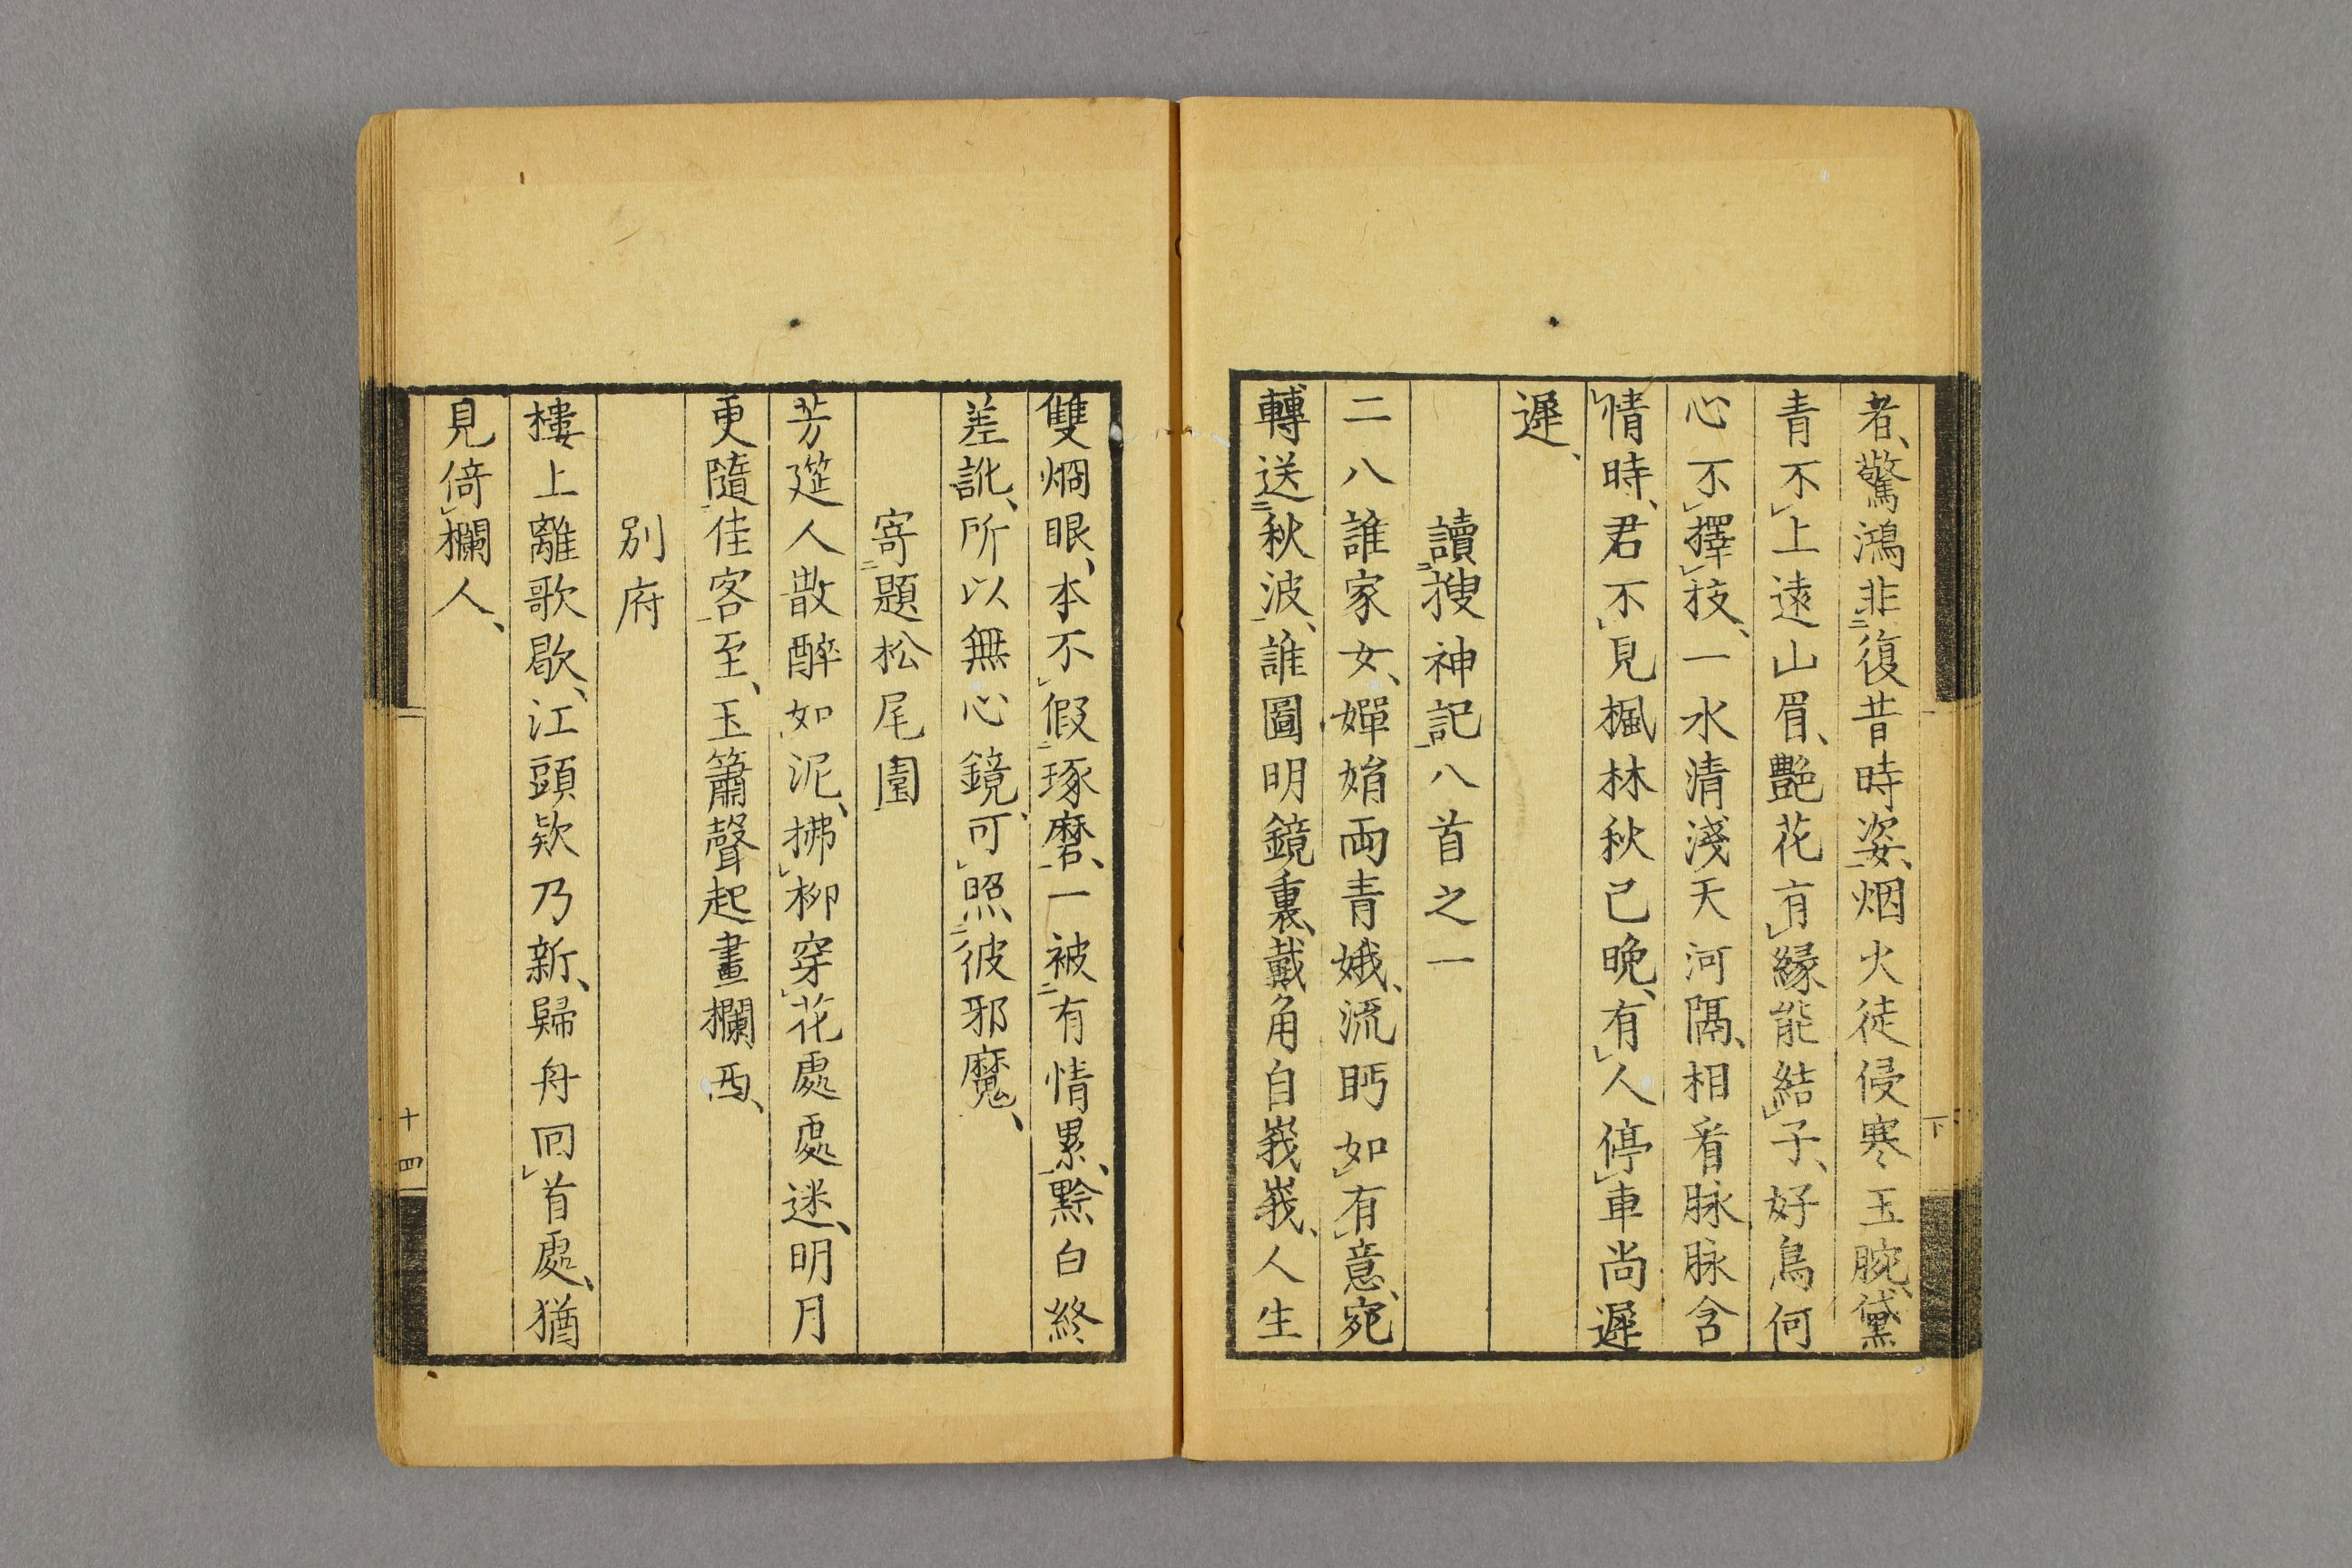 者、驚鴻非復昔時姿、烟火徒侵寒玉腕、黛
青不上遠山眉、艷花有緣能結子、好鳥何
心不擇枝、一水清淺天河隔、相看脉脉含
情時、君不見楓林秋已晚、有人停車尚遲
遲、
讀搜神記八首之一
二八誰家女、嬋娟兩青娥、流眄如有意、宛
轉送秋波、誰圖明鏡裏、戴角自峩峩、人生
下
雙烱眼、本不假琢磨、一被有情累、黲白終
差訛、所以無心鏡、可照彼邪魔、
寄題松尾園
芳筵人散醉如泥、拂柳穿花處處迷、明月
更隨佳客至、玉簫聲起畫欄西、
別府
樓上離歌歇、江頭欸乃新、歸舟回首處、猶
見倚欄人、
十四